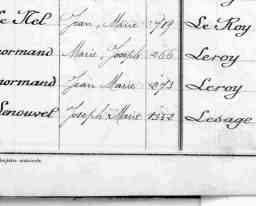 Le Kel Jean Marie 789 Le Roy
normand Marie, Joseph 266 Leroy
normand Jean Marie 273 Leroy
Lenouvel Joseph Marie 1552 Lesage